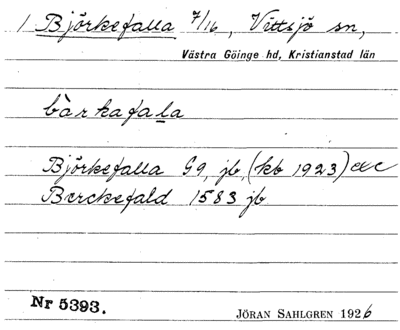 1 Björkefalla 7/16, Vittsjö sn,
Västra Göinge hd, Kristianstad län
bàrkafala
Björkefalla G9, jb, (kb 1923) etc
Berckefald 1583 jb
Nr 5393. JÖRAN SAHLGREN 1926